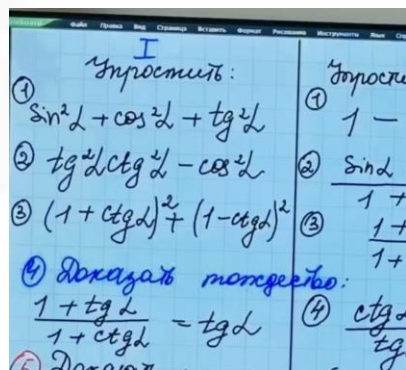 Файл Правка Вид Страница Вставить Формат Рисование Инструменты
I
Упростить:
① sin²α + cos²α + tg²α
② tg²α ctg²α − cos²α
③ (1 + ctgα)² + (1 − ctgα)²
④ Доказать тождество:
(1 + tgα)/(1 + ctgα) = tgα
⑤
① 1 −
② sinα
1 +
③ 1 +
1 +
④ ctg
tg